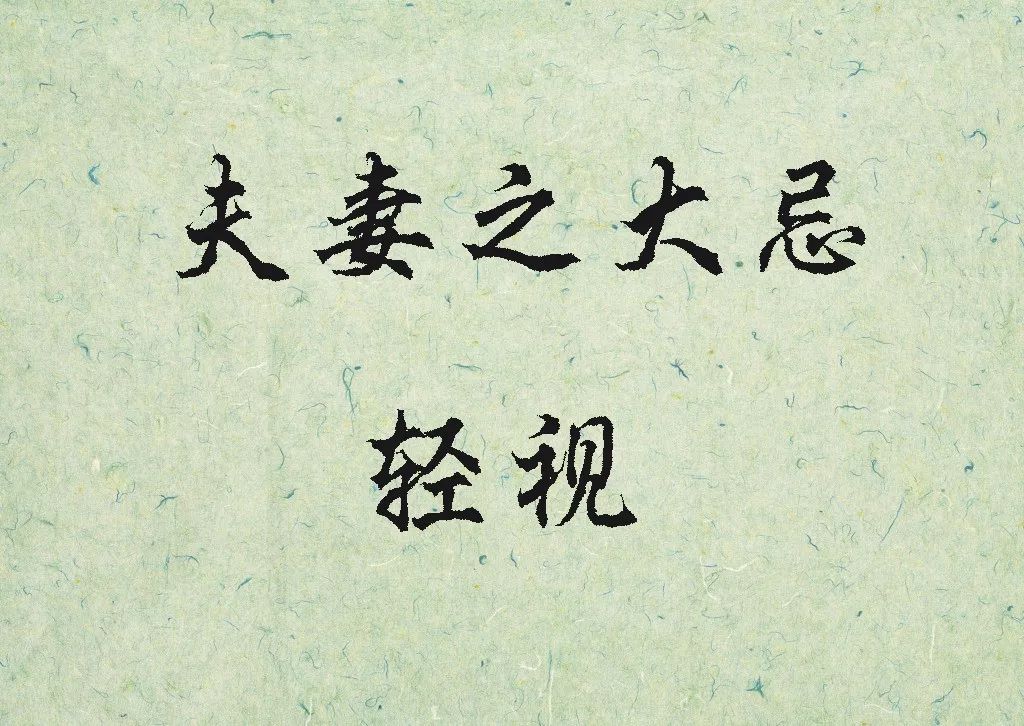 夫妻之大忌
轻视